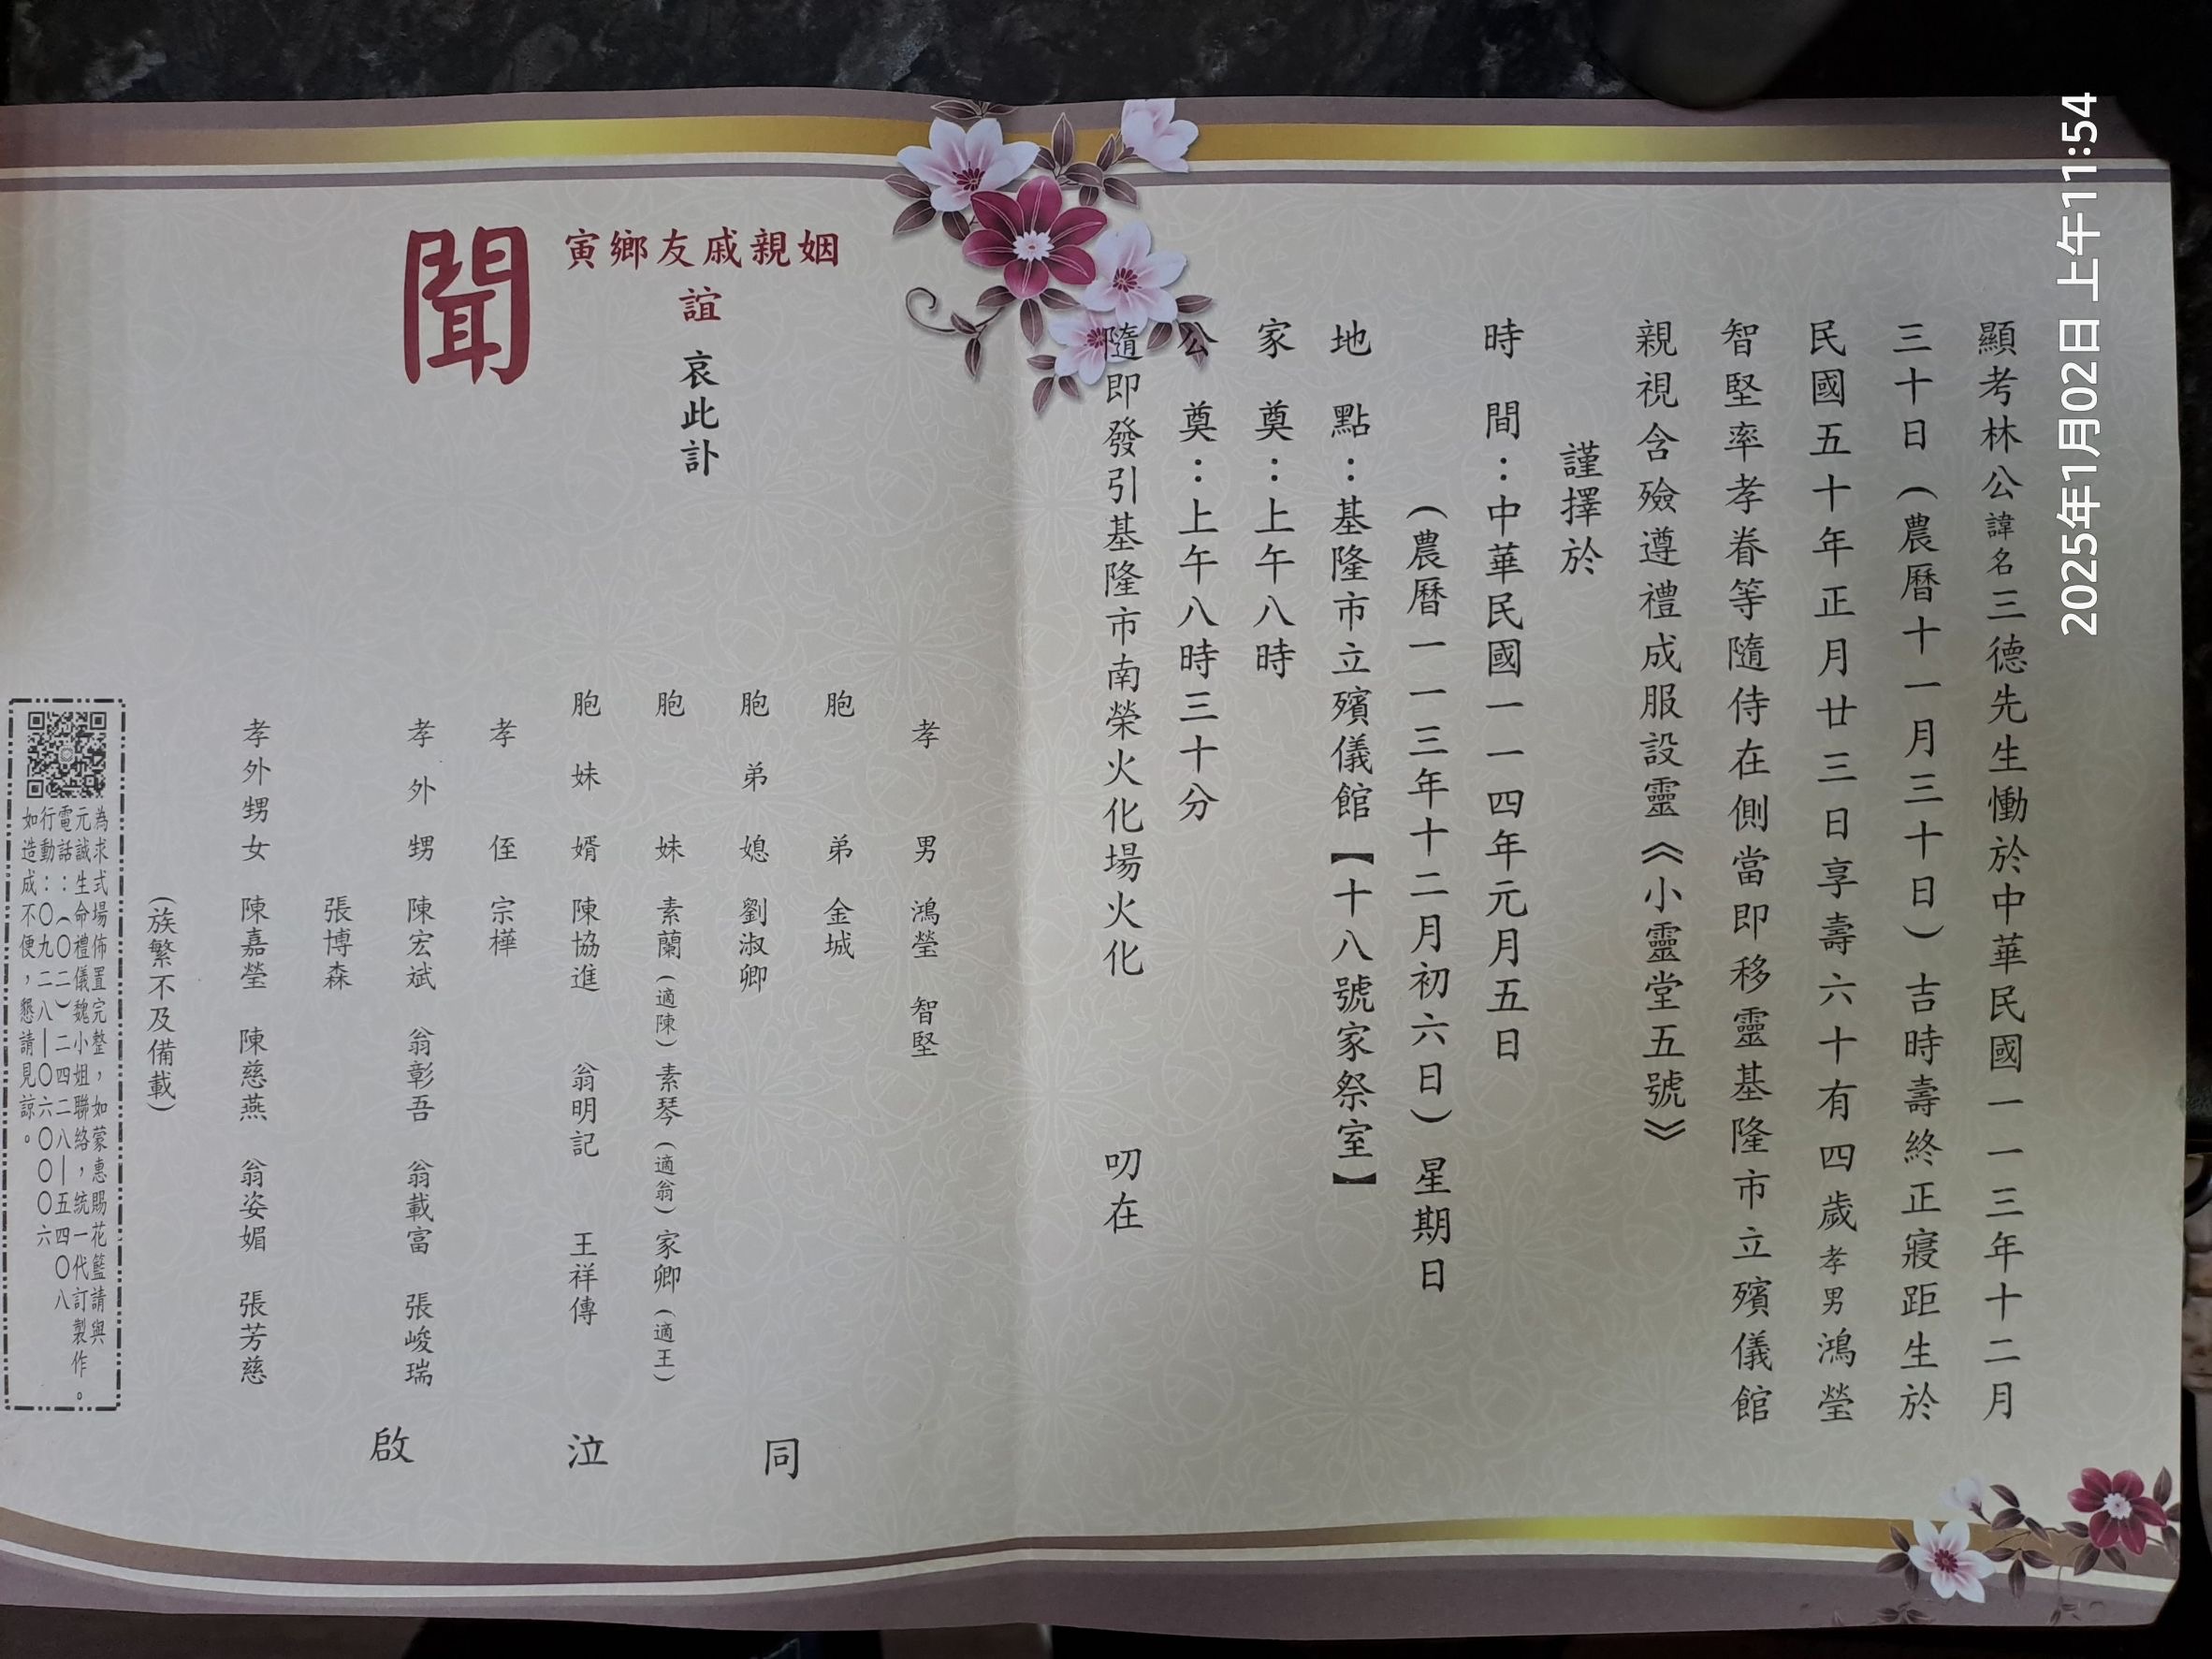 顯考林公諱名三德先生慟於中華民國一一三年十二月
三十日（農曆十一月三十日）吉時壽終正寢距生於
民國五十年正月廿三日享壽六十有四歲孝男鴻瑩
智堅率孝眷等隨侍在側當即移靈基隆市立殯儀館
親視含殮遵禮成服設靈《小靈堂五號》
謹擇於
時　間：中華民國一一四年元月五日
（農曆一一三年十二月初六日）星期日
地　點：基隆市立殯儀館【十八號家祭室】
家　奠：上午八時
公　奠：上午八時三十分
隨即發引基隆市南榮火化場火化　叨在
寅鄉友戚親姻
誼　哀此訃
聞
孝男　鴻瑩　智堅
胞弟　金城
胞弟媳　劉淑卿
胞妹　素蘭（適陳）素琴（適翁）家卿（適王）
胞妹婿　陳協進　翁明記　王祥傳
孝侄　宗樺
孝外甥　陳宏斌　翁彰吾　翁載富　張峻瑞
張博森
孝外甥女　陳嘉瑩　陳慈燕　翁姿媚　張芳慈
（族繁不及備載）
同　泣　啟
為求式場佈置完整，如蒙惠賜花籃請與
元誠生命禮儀魏小姐聯絡，統一代訂製作。
電話：（〇二）二四二八｜五四〇八
行動：〇九二八｜〇六〇〇〇六
如造成不便，懇請見諒。
2025年1月02日 上午11:54